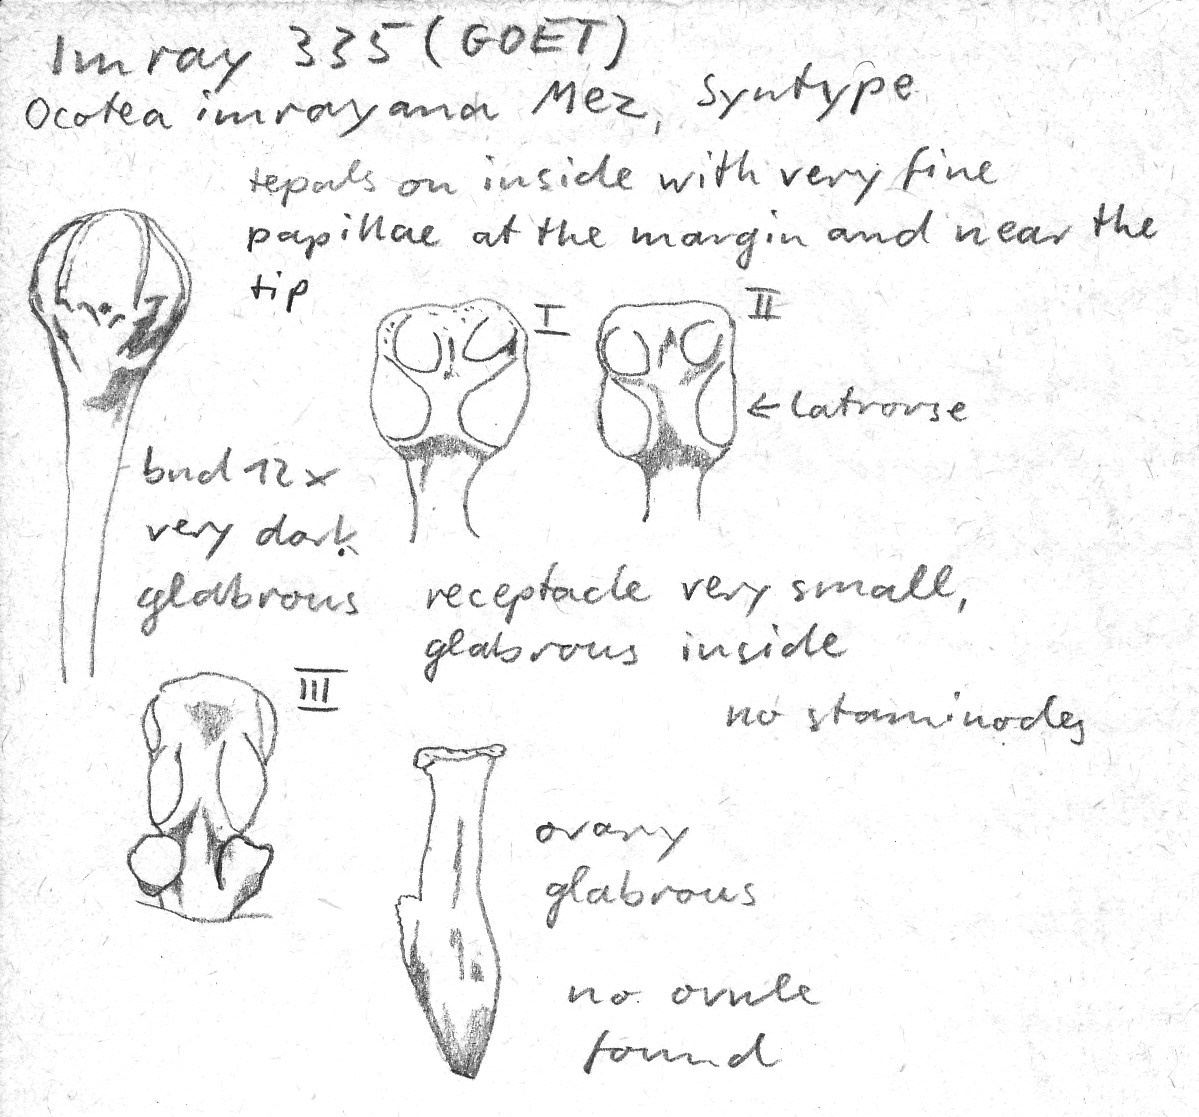 Imray 335 (GOET)
Ocotea imrayana Mez, Syntype
tepals on inside with very fine
papillae at the margin and near the
tip
I
II
← latrorse
bud 12x
very dark
glabrous
receptacle very small,
glabrous inside
III
no staminodes
ovary
glabrous
no ovule
found